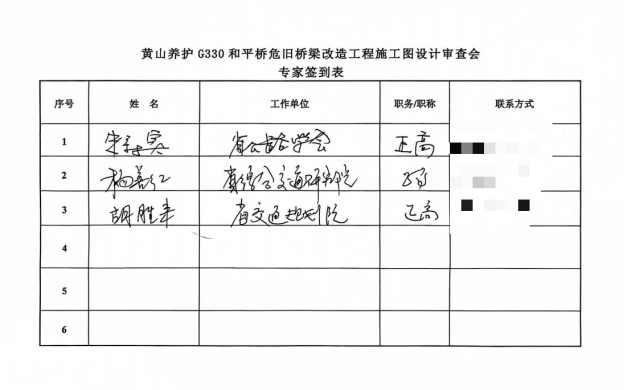 黄山养护 G330 和平桥危旧桥梁改造工程施工图设计审查会
专家签到表
序号 姓 名 工作单位 职务/职称 联系方式
1 省公路学会 正高
2 交通研究院 正高
3 胡胜来 省交通规划院 正高
4
5
6